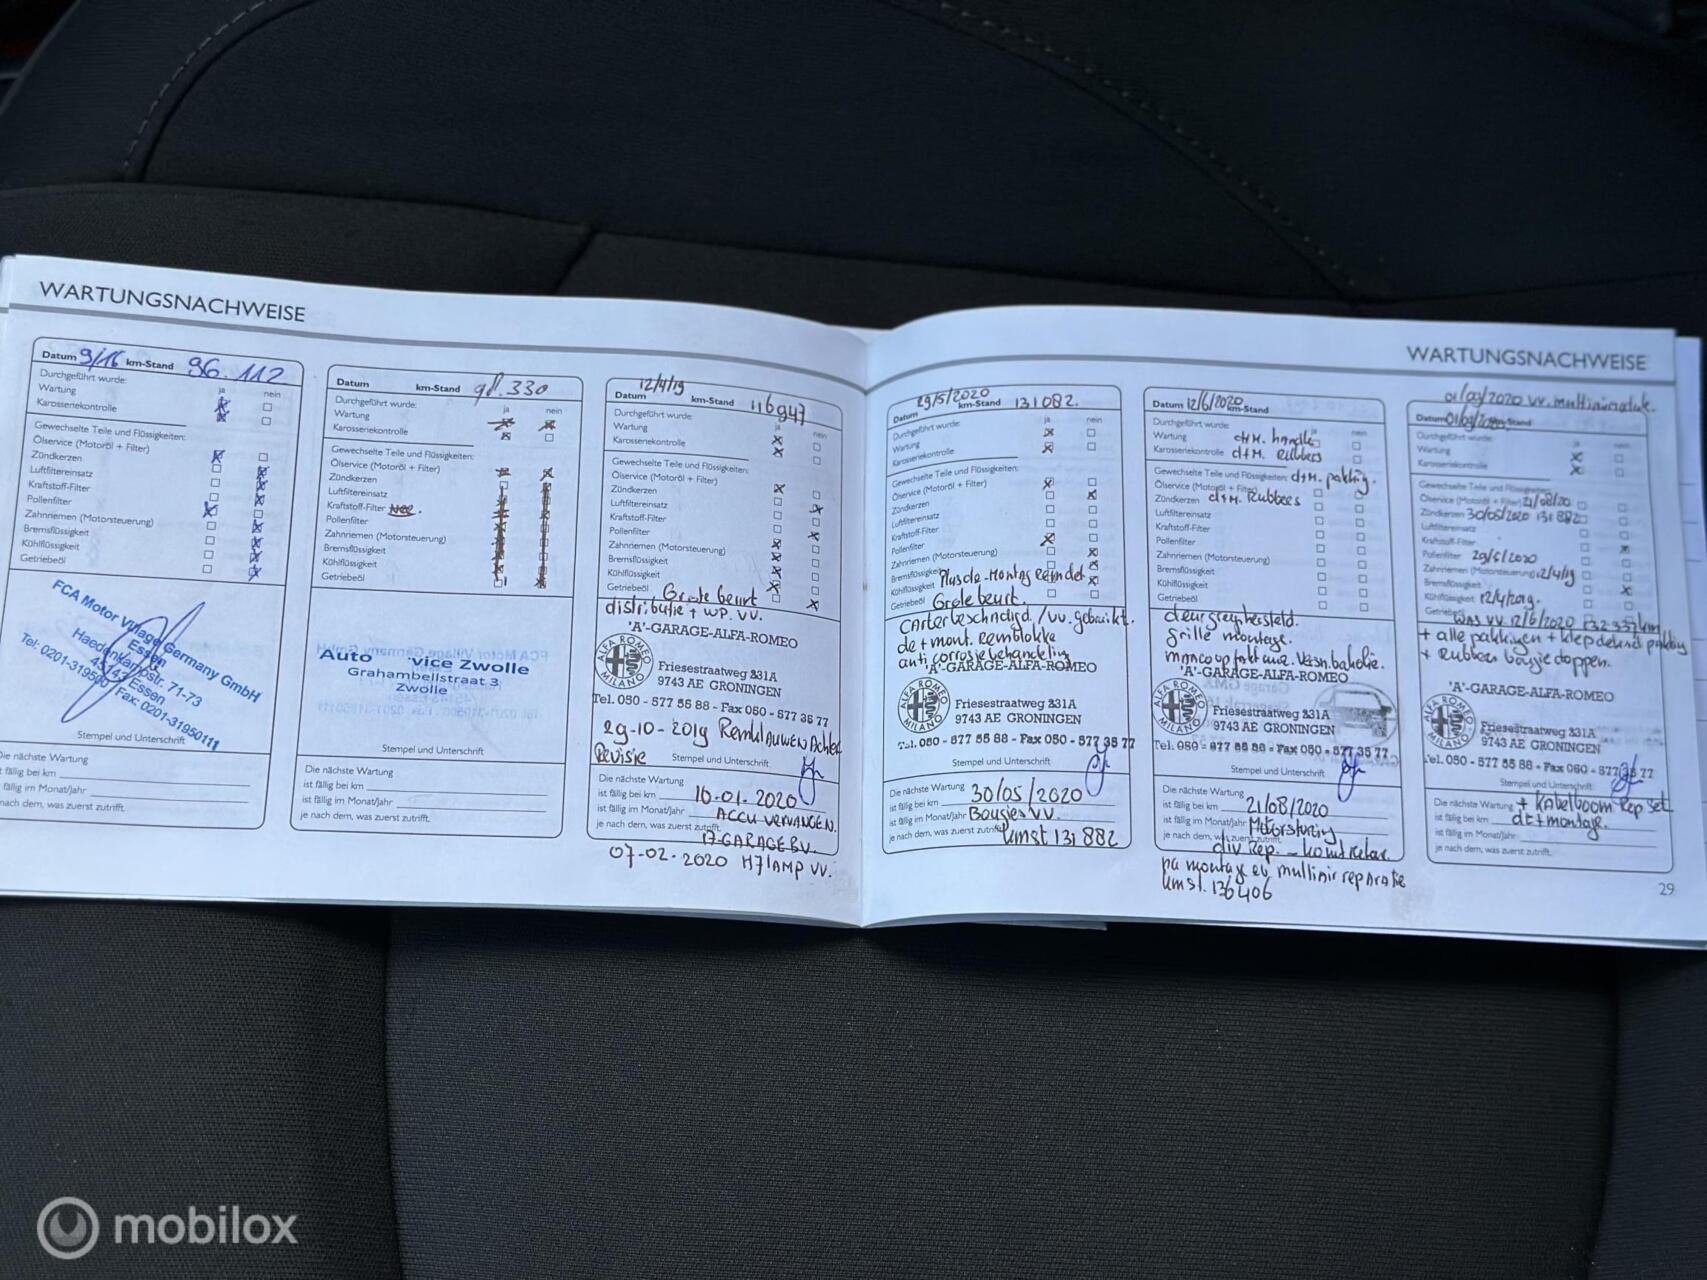 WARTUNGSNACHWEISE
Datum 9/16 km-Stand 96.112
Durchgeführt wurde: ja nein
Wartung
Karosseriekontrolle
Gewechselte Teile und Flüssigkeiten:
Ölservice (Motoröl + Filter)
Zündkerzen
Luftfiltereinsatz
Kraftstoff-Filter
Pollenfilter
Zahnriemen (Motorsteuerung)
Bremsflüssigkeit
Kühlflüssigkeit
Getriebeöl
FCA Motor Village Germany GmbH
Essen
Haedenkampstr. 71-73
45143 Essen
Tel: 0201-319500 Fax: 0201-31950111
Stempel und Unterschrift
Die nächste Wartung
ist fällig bei km
fällig im Monat/Jahr
nach dem, was zuerst zutrifft.
Datum km-Stand 98.330
Durchgeführt wurde: ja nein
Wartung
Karosseriekontrolle
Gewechselte Teile und Flüssigkeiten:
Ölservice (Motoröl + Filter)
Zündkerzen
Luftfiltereinsatz
Kraftstoff-Filter
Pollenfilter
Zahnriemen (Motorsteuerung)
Bremsflüssigkeit
Kühlflüssigkeit
Getriebeöl
Auto vice Zwolle
Grahambellstraat 3
Zwolle
Stempel und Unterschrift
Die nächste Wartung
ist fällig bei km
ist fällig im Monat/Jahr
je nach dem, was zuerst zutrifft.
12/4/19
Datum km-Stand 116947
Durchgeführt wurde: ja nein
Wartung
Karosseriekontrolle
Gewechselte Teile und Flüssigkeiten:
Ölservice (Motoröl + Filter)
Zündkerzen
Luftfiltereinsatz
Kraftstoff-Filter
Pollenfilter
Zahnriemen (Motorsteuerung)
Bremsflüssigkeit
Kühlflüssigkeit
Getriebeöl Grote beurt
distributie + WP. VV.
'A'-GARAGE-ALFA-ROMEO
ALFA ROMEO MILANO
Friesestraatweg 231A
9743 AE GRONINGEN
Tel. 050 - 577 55 88 - Fax 050 - 577 35 77
29-10-2019 Remklauwen Achter
Revisie Stempel und Unterschrift
Die nächste Wartung
ist fällig bei km 10.01.2020
ist fällig im Monat/Jahr ACCU VERVANGEN.
je nach dem, was zuerst zutrifft.
17-GARAGE BV.
07-02-2020 H7 LAMP VV.
WARTUNGSNACHWEISE
29/5/2020
Datum km-Stand 131082.
Durchgeführt wurde: ja nein
Wartung
Karosseriekontrolle
Gewechselte Teile und Flüssigkeiten:
Ölservice (Motoröl + Filter)
Zündkerzen
Luftfiltereinsatz
Kraftstoff-Filter
Pollenfilter
Zahnriemen (Motorsteuerung)
Bremsflüssigkeit
Kühlflüssigkeit
Getriebeöl Grote beurt.
Carter beschadigd/vv. gebruikt.
de + mont. Remblokke
anti corrosie behandeling
'A'-GARAGE-ALFA-ROMEO
ALFA ROMEO MILANO
Friesestraatweg 231A
9743 AE GRONINGEN
Tel. 050 - 577 55 88 - Fax 050 - 577 35 77
Stempel und Unterschrift
Die nächste Wartung 30/05/2020
ist fällig bei km Bougies VV.
ist fällig im Monat/Jahr
je nach dem, was zuerst zutrifft kmst 131882
Datum 12/6/2020 km-Stand
Durchgeführt wurde: ja nein
Wartung d+M. handle
Karosseriekontrolle d+M. Rubbers
Gewechselte Teile und Flüssigkeiten: d+M. pakking.
Ölservice (Motoröl + Filter)
Zündkerzen d+M. Rubbers
Luftfiltereinsatz
Kraftstoff-Filter
Pollenfilter
Zahnriemen (Motorsteuerung)
Bremsflüssigkeit
Kühlflüssigkeit
Getriebeöl
deurgreep hersteld.
grille montage.
'A'-GARAGE-ALFA-ROMEO
ALFA ROMEO MILANO
Friesestraatweg 231A
9743 AE GRONINGEN
Tel. 050 - 577 55 88 - Fax 050 - 577 35 77
Stempel und Unterschrift
Die nächste Wartung
ist fällig bei km 21/08/2020
ist fällig im Monat/Jahr Motorstoring
je nach dem, was zuerst zutrifft.
div Rep.
na montage en multiair reparatie
kmst. 136406
Datum km-Stand
Durchgeführt wurde: ja nein
Wartung
Karosseriekontrolle
Gewechselte Teile und Flüssigkeiten:
Ölservice (Motoröl + Filter) 21/08/20
Zündkerzen 30/05/2020 131882
Luftfiltereinsatz
Kraftstoff-Filter
Pollenfilter 29/5/2020
Zahnriemen (Motorsteuerung) 12/4/19
Bremsflüssigkeit
Kühlflüssigkeit 12/4/2019.
Getriebeöl was vv 12/6/2020 132337km
+ alle pakkingen + klependeksel pakking
+ Rubbers bougie doppen.
'A'-GARAGE-ALFA-ROMEO
ALFA ROMEO MILANO
Friesestraatweg 231A
9743 AE GRONINGEN
Tel. 050 - 577 55 88 - Fax 050 - 577 35 77
Stempel und Unterschrift
Die nächste Wartung + Kabelboom Rep set
ist fällig bei km de + montage.
ist fällig im Monat/Jahr
je nach dem, was zuerst zutrifft.
29
mobilox